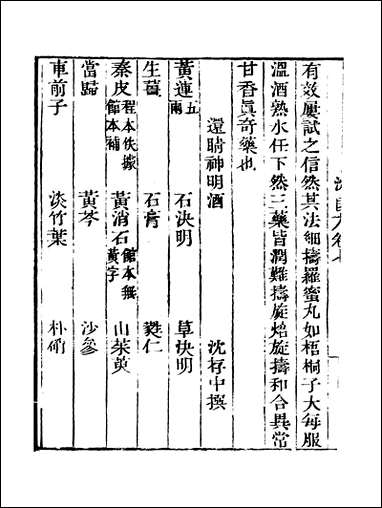 有效屢試之信然其法細擣羅蜜丸如梧桐子大每服
溫酒熟水任下然三藥皆潤難擣旋焙旋擣和合異常
甘香眞奇藥也
還睛神明酒 沈存中撰
黃連五兩 石決明 草決明
生薑 石膏 蕤仁
秦皮程本佚據館本補 黃消石館本無黃字 山茱萸
當歸 黃芩 沙參
車前子 淡竹葉 朴硝